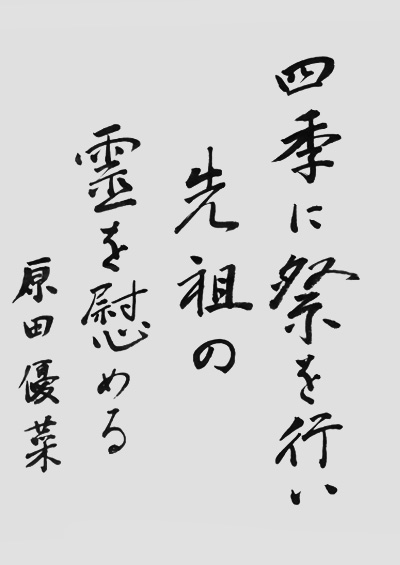 四季に祭を行い
先祖の
霊を慰める
原田優菜